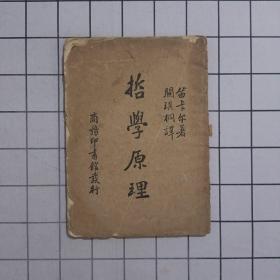 笛卡尔著
關琪桐譯
哲學原理
商務印書館發行